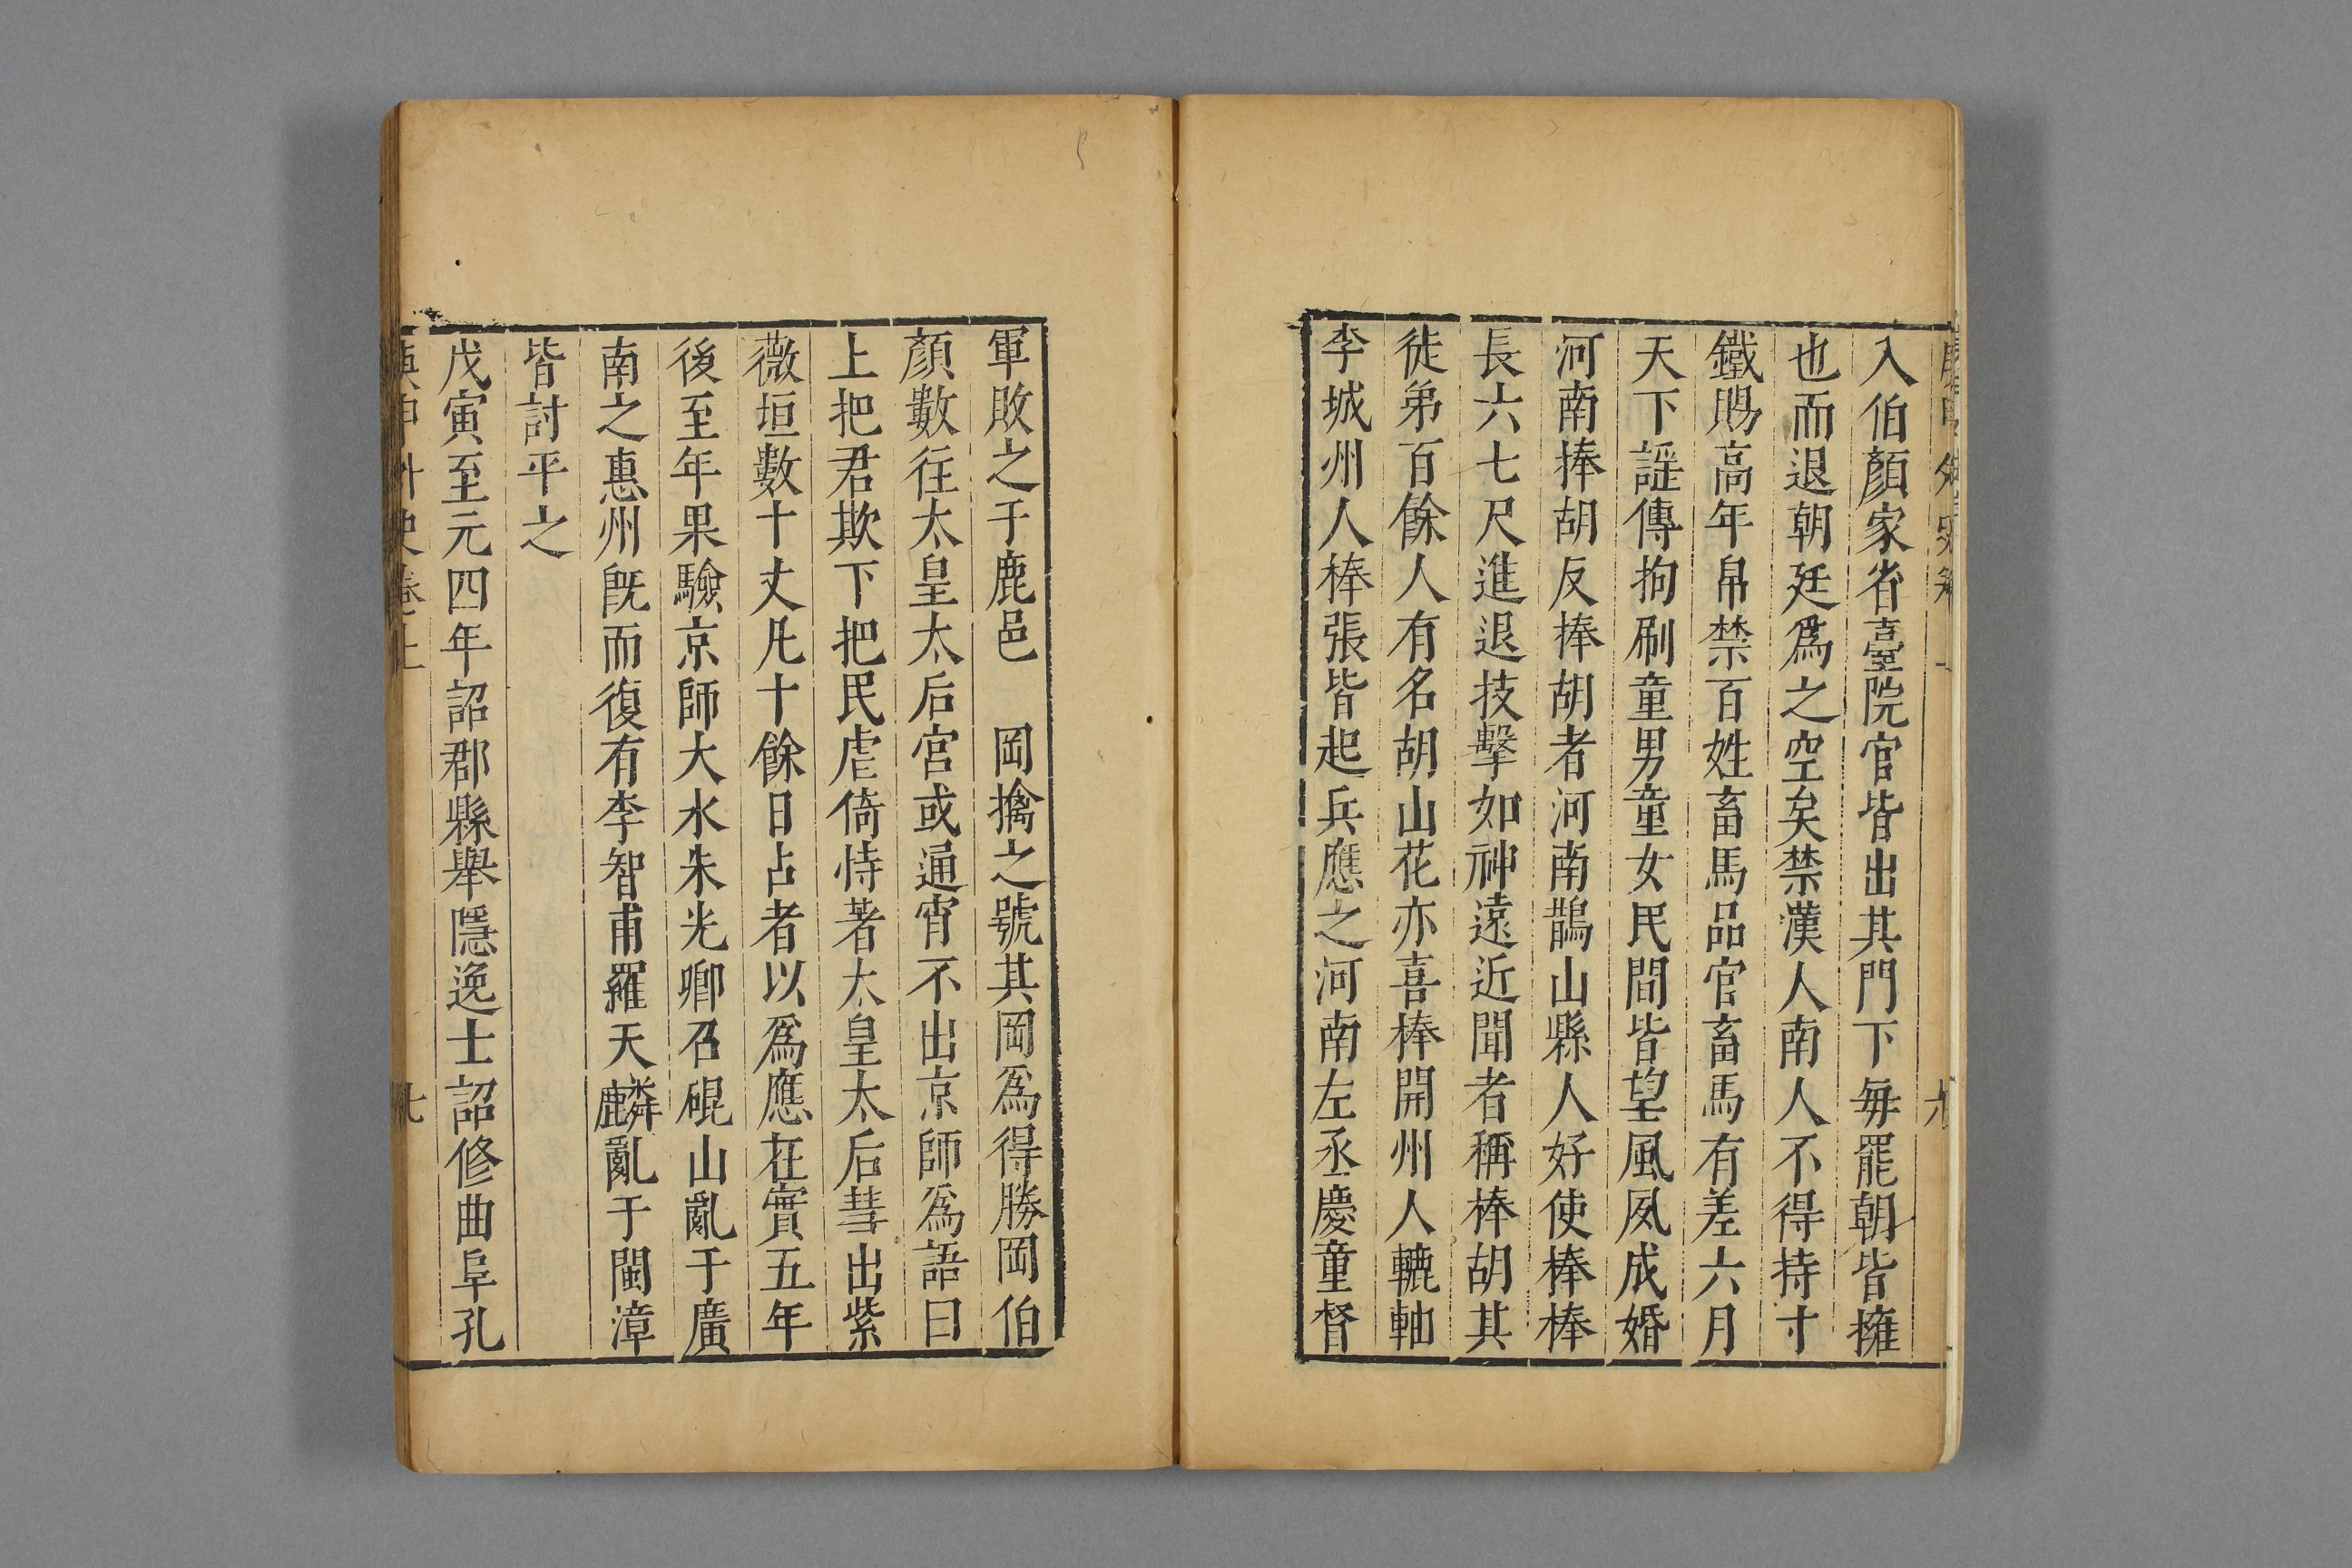 入伯顏家省臺院官皆出其門下每罷朝皆擁
也而退朝廷爲之空矣禁漢人南人不得持寸
鐵賜高年帛禁百姓畜馬品官畜馬有差六月
天下謡傳拘刷童男童女民間皆望風夙成婚
河南捧胡反捧胡者河南鵲山縣人好使棒棒
長六七尺進退技擊如神遠近聞者稱棒胡其
徒弟百餘人有名胡山花亦喜棒開州人轆軸
李城州人棒張皆起兵應之河南左丞慶童督
軍敗之于鹿邑 岡擒之號其岡爲得勝岡伯
顏數往太皇太后宮或通宵不出京師爲語曰
上把君欺下把民虐倚恃著太皇太后彗出紫
薇垣數十丈凡十餘日占者以爲應在實五年
後至年果驗京師大水朱光卿召硍山亂于廣
南之惠州旣而復有李智甫羅天麟亂于閩漳
皆討平之
戊寅至元四年詔郡縣舉隱逸士詔修曲阜孔
庚申外史卷上
七